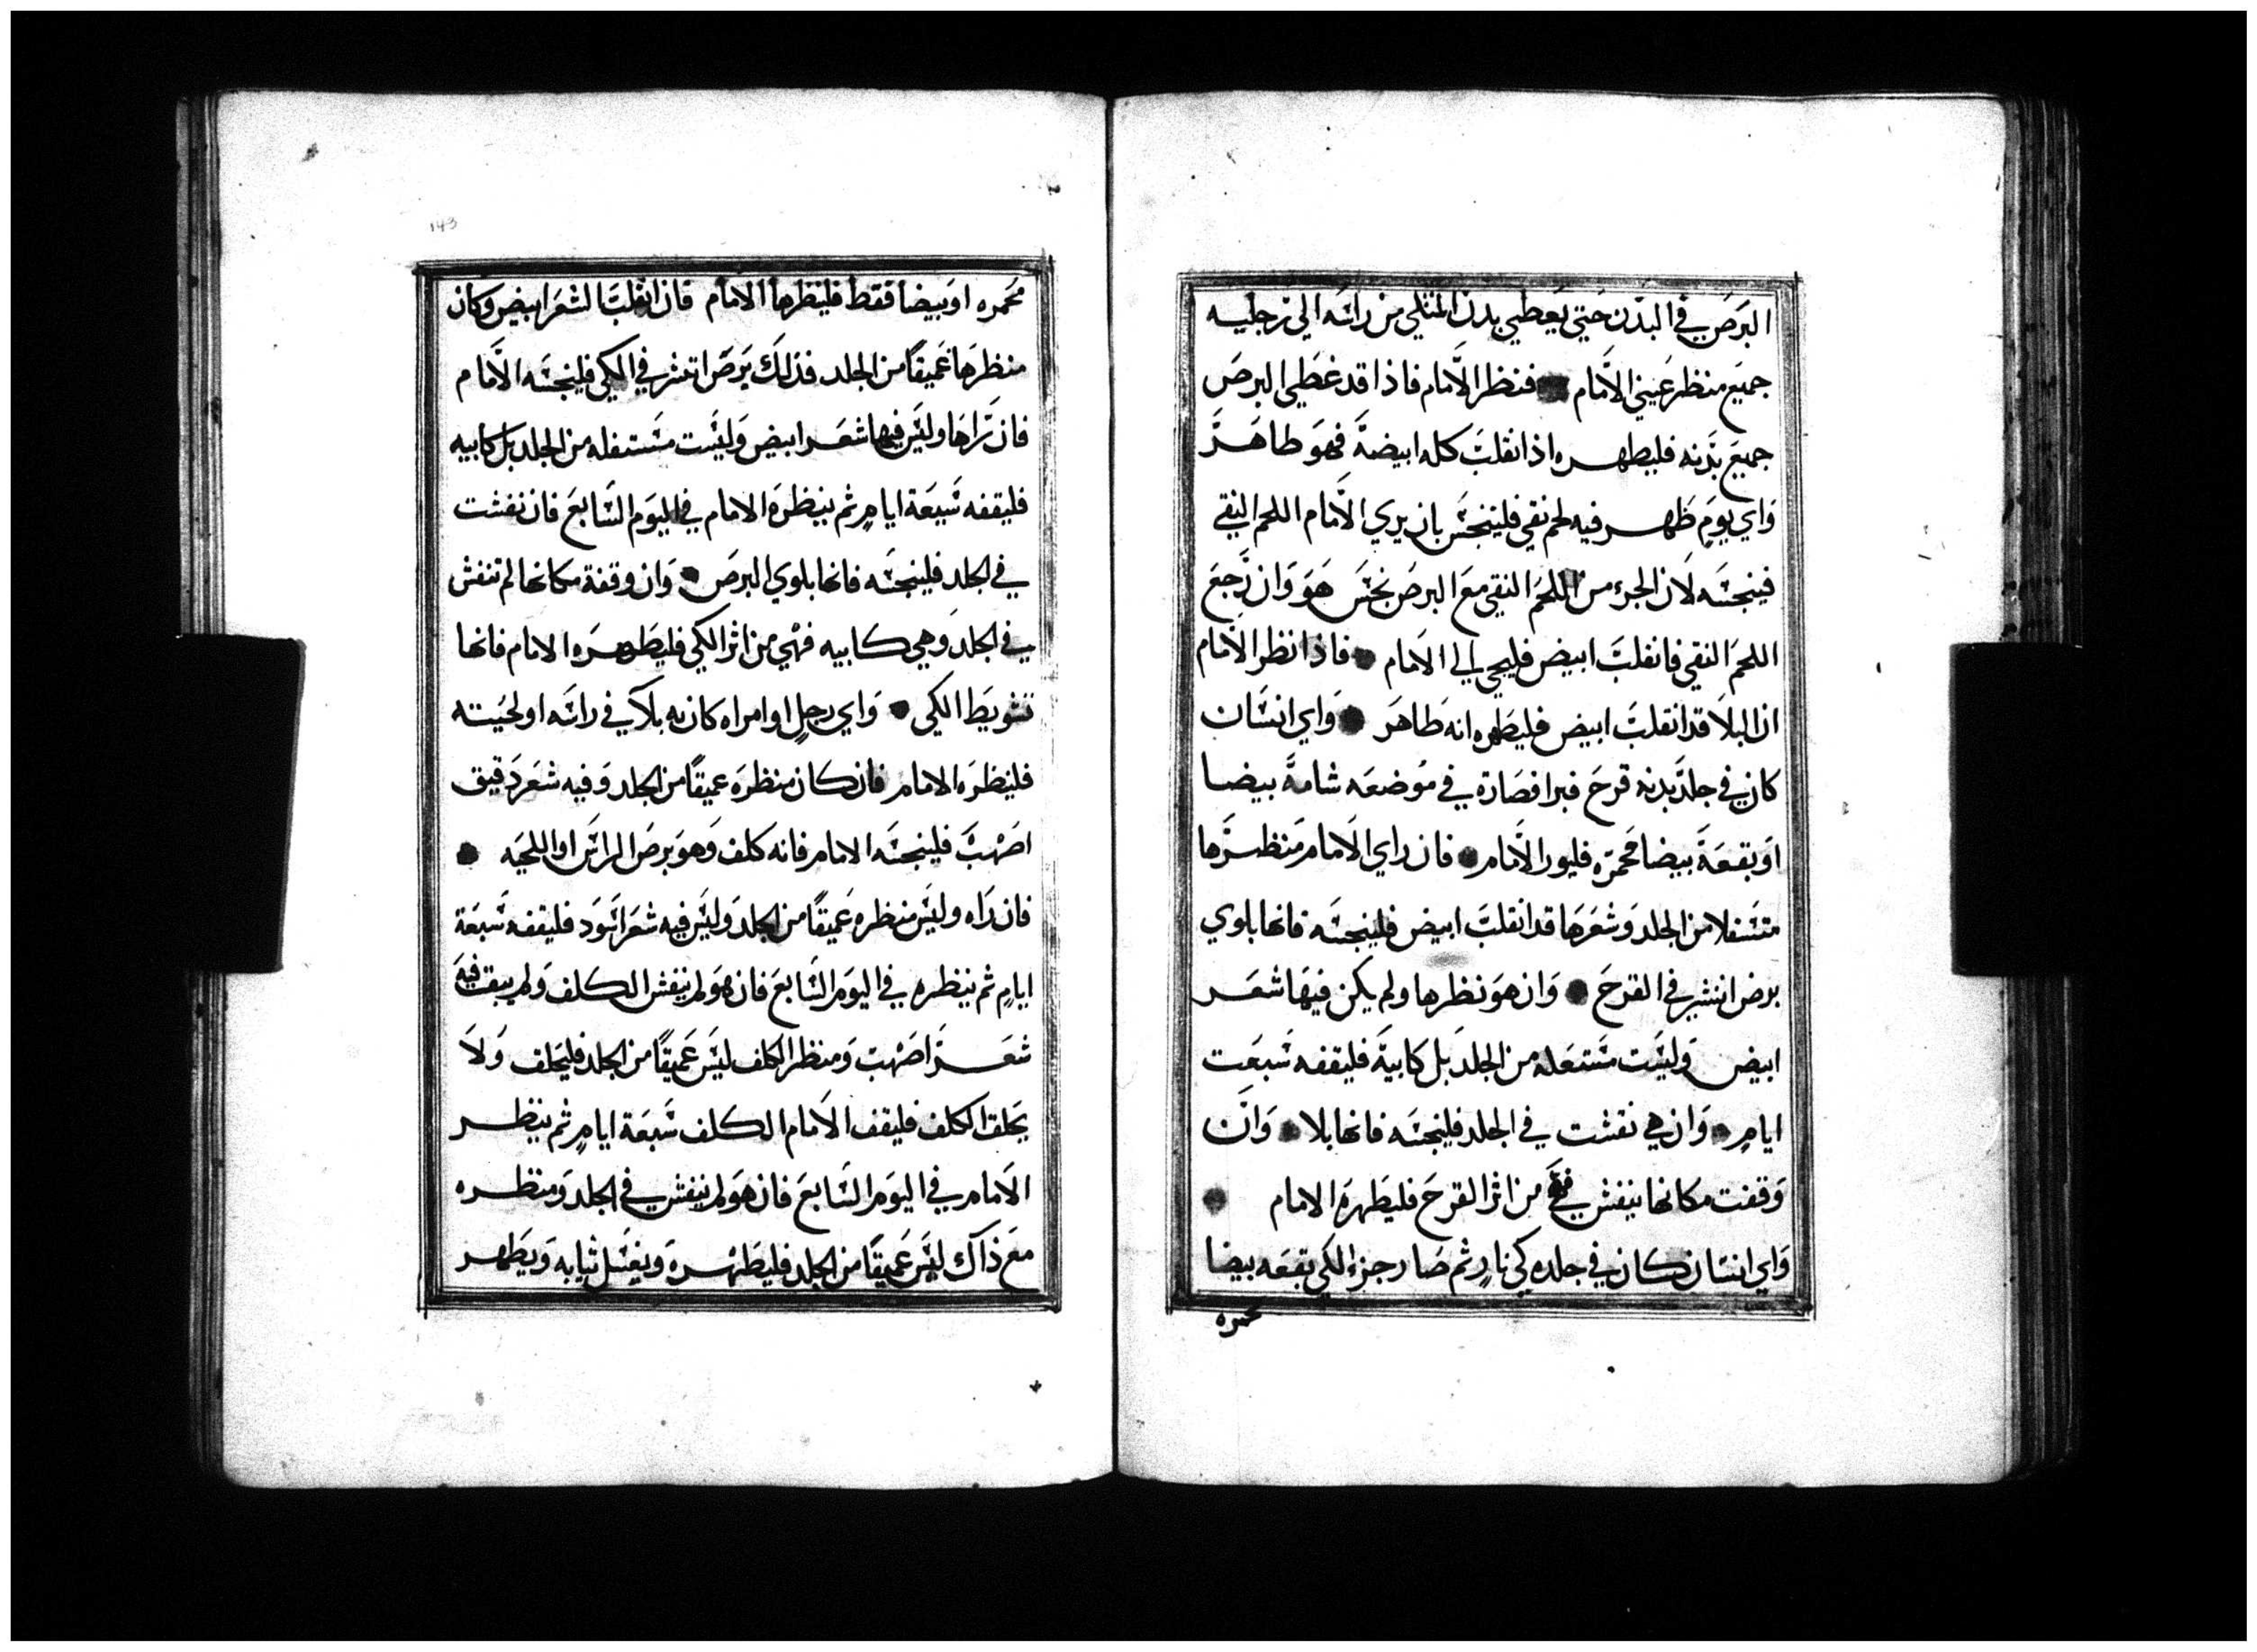 البرص في البدن حتي يغطي بدن المبتلي من راسه الي رجليه
جميع منظر عيني الامام فنظر الامام فاذا قد غطي البرص
جميع بدنه فليطهره اذا نقلبت كله ابيضة فهو طاهر
واي يوم ظهر فيه لحم نقي فلينجس بان يري الامام اللحم النقي
فينجسه لان الجزء من اللحم النقي مع البرص نجس هو وان رجع
اللحم النقي فانقلب ابيض فليجي الي الامام فاذا نظر الامام
ان البلا قد انقلب ابيض فليطهره انه طاهر واي انسان
كان في جلد بدنه قرح فبرا فصاره في موضعه شامة بيضا
او بقعة بيضا محمره فليور الامام فان راي الامام منظرها
متسفلا من الجلد وشعرها قد انقلب ابيض فلينجسه فانها بلوي
برص انتشر في القرح وان هو نظرها ولم يكن فيها شعر
ابيض وليست مستفله من الجلد بل كابية فليقفه سبعت
ايام وان هي نفشت في الجلد فلينجسه فانها بلا وان
وقفت مكانها ينفش من اثر القرح فليطهره الامام
واي انسان كان في جلده كي نار ثم صار جزء الكي بقعه بيضا
محمره
143
محمره او بيضا فقط فلينظرها الامام فان انقلب الشعر ابيض وكان
منظرها عميقا من الجلد فذلك برص انتشر في الكي فلينجسه الامام
فان راها وليس فيها شعر ابيض وليست مستفله من الجلد بل كابيه
فليقفه سبعة ايام ثم ينظره الامام في اليوم السابع فان نفشت
في الجلد فلينجسه فانها بلوي البرص وان وقفة مكانها لم تنفش
في الجلد وهي كابيه فهي من اثر الكي فليطهره الامام فانها
تشويط الكي واي رجل او امراه كان به بلآ في راسه او لحيته
فلينظره الامام فان كان منظره عميقا من الجلد وفيه شعر دقيق
اصهب فلينجسه الامام فانه كلف وهو برص الراس او اللحيه
فان راه وليس منظره عميقا من الجلد وليس فيه شعر اسود فليقفه سبعة
ايام ثم ينظره في اليوم السابع فان هو لم ينفش الكلف ولم يبق فيه
شعر اصهب ومنظر الكلف ليس عميقا من الجلد فليحلف ولا
يحلق الكلف فليقف الامام الكلف سبعة ايام ثم ينظر
الامام في اليوم السابع فان هو لم ينفش في الجلد ومنظره
مع ذاك ليس عميقا من الجلد فليطهره ويغسل ثيابه ويطهر